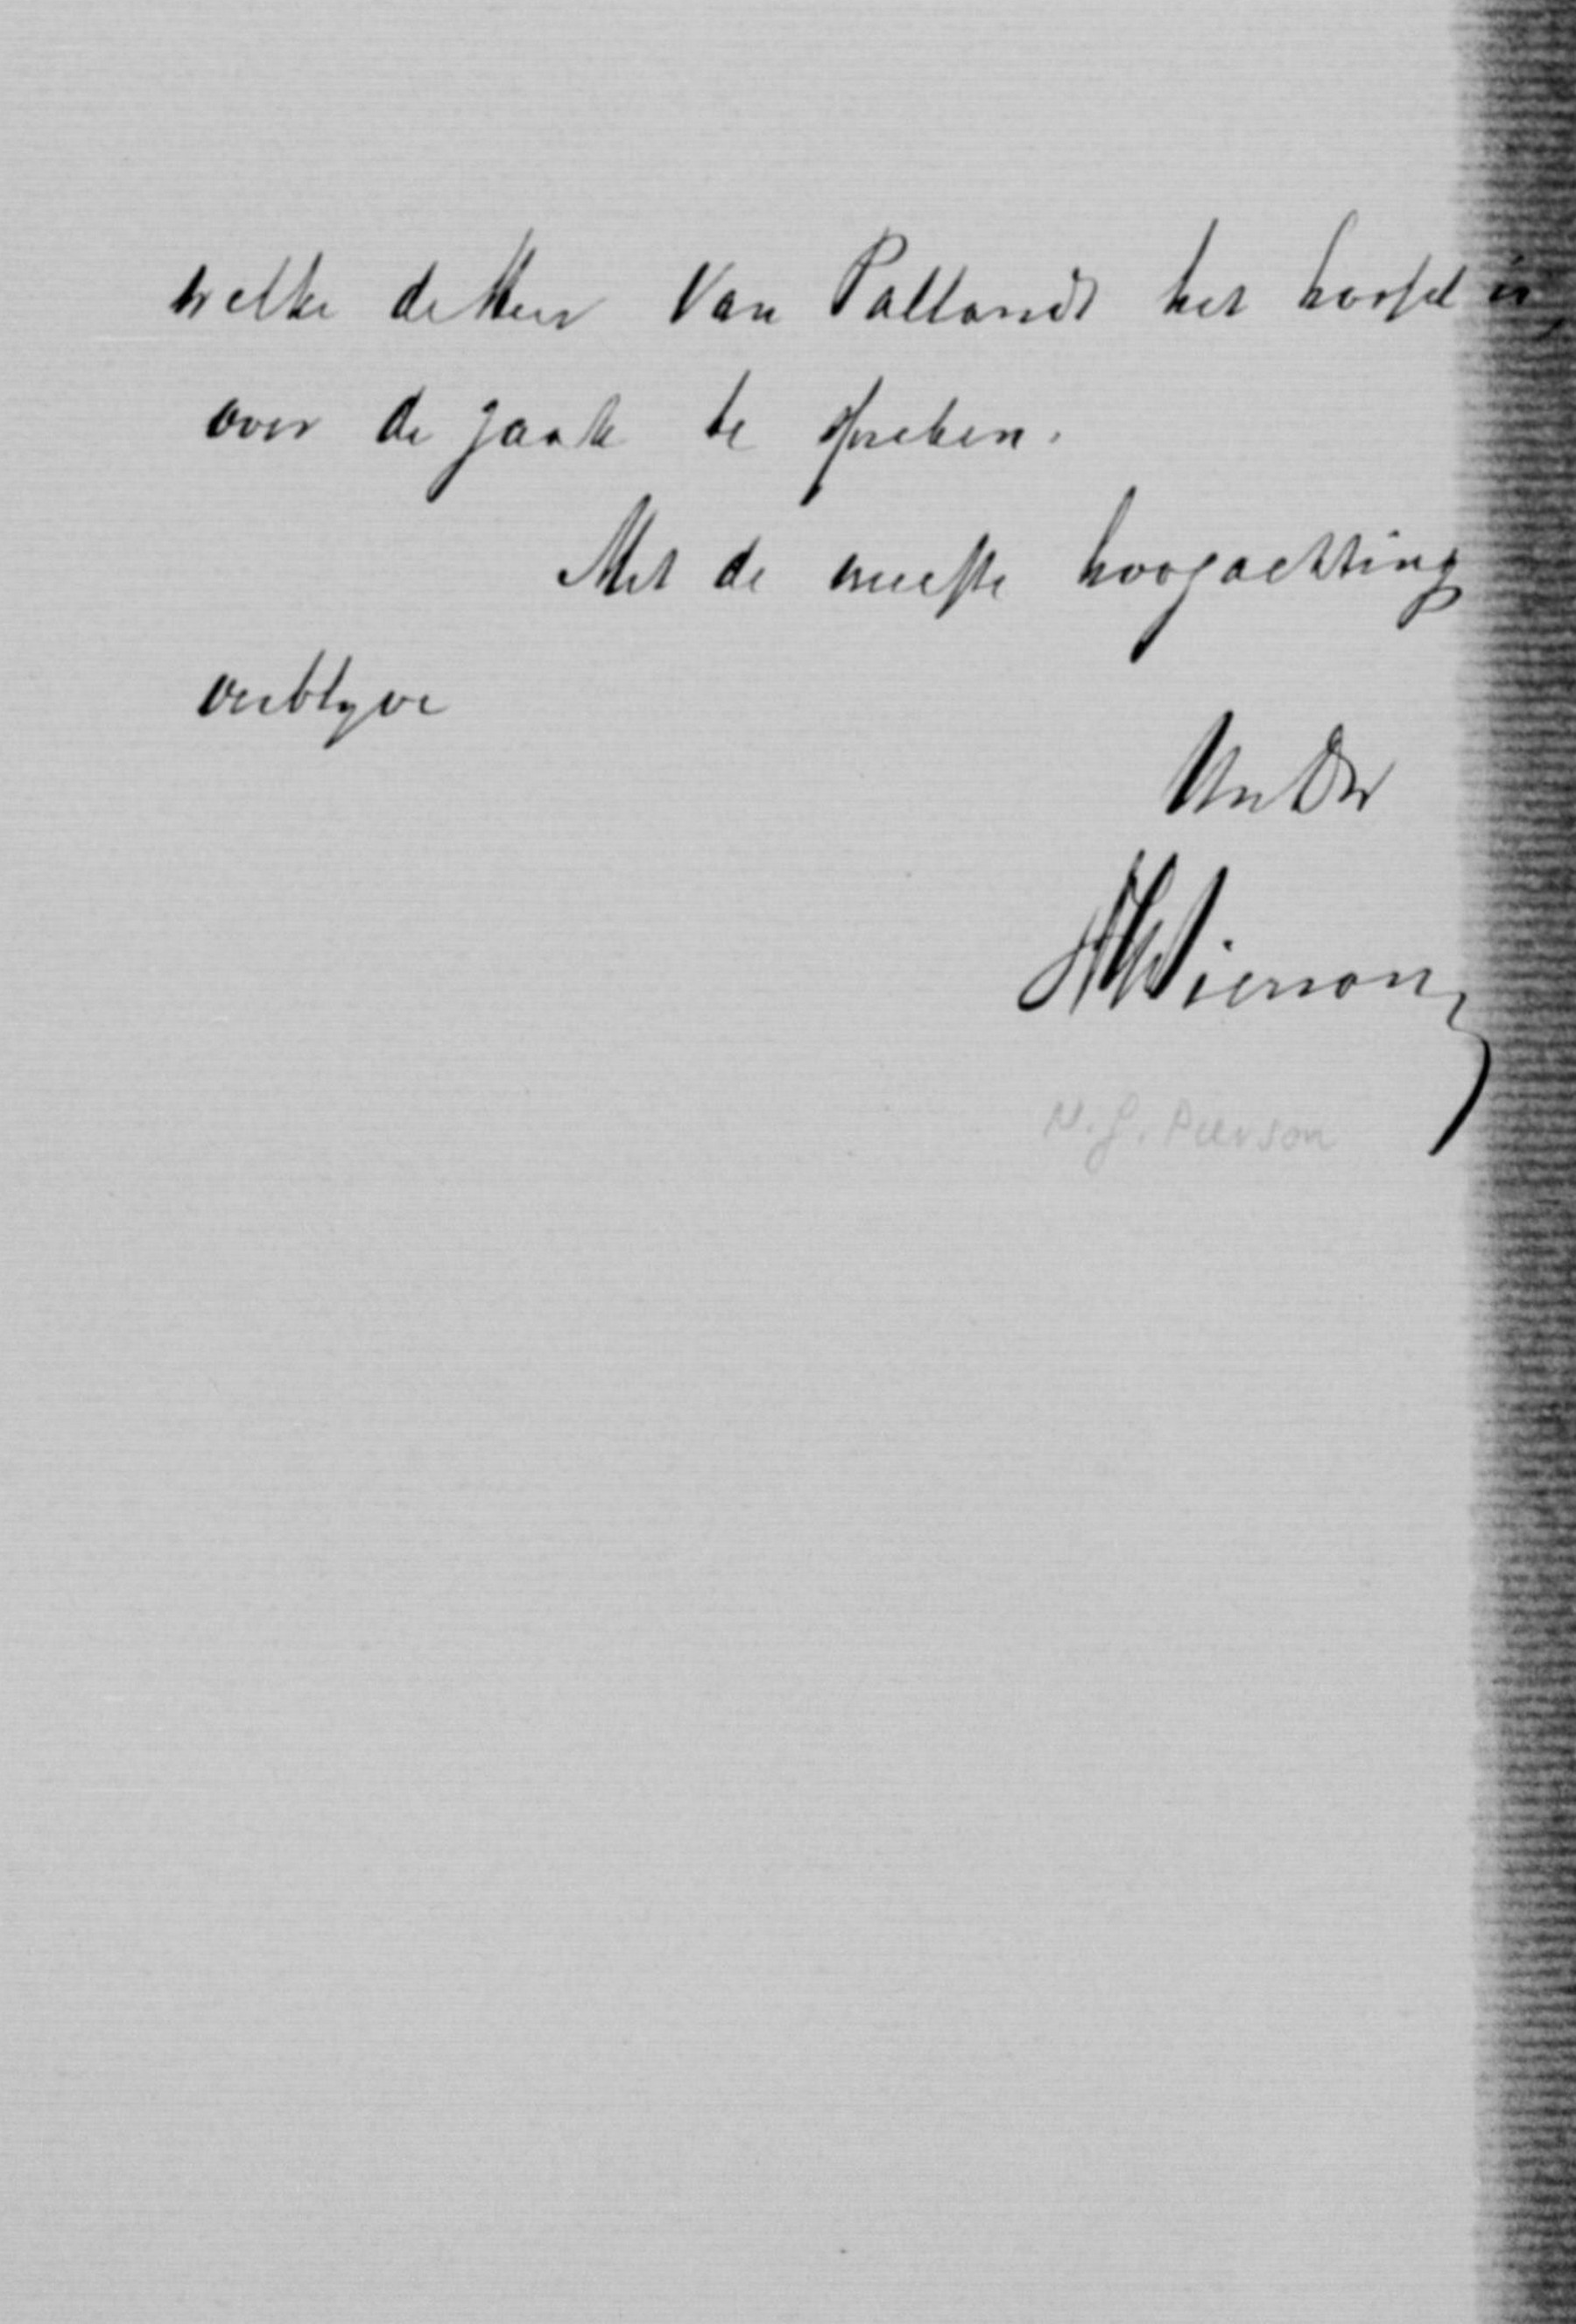 welke de Heer Van Pallandt het hoofd is,
over de zaak te spreken.
Met de meeste hoogachting
verblyve
Uw Dw
NGPierson
N.G. Pierson